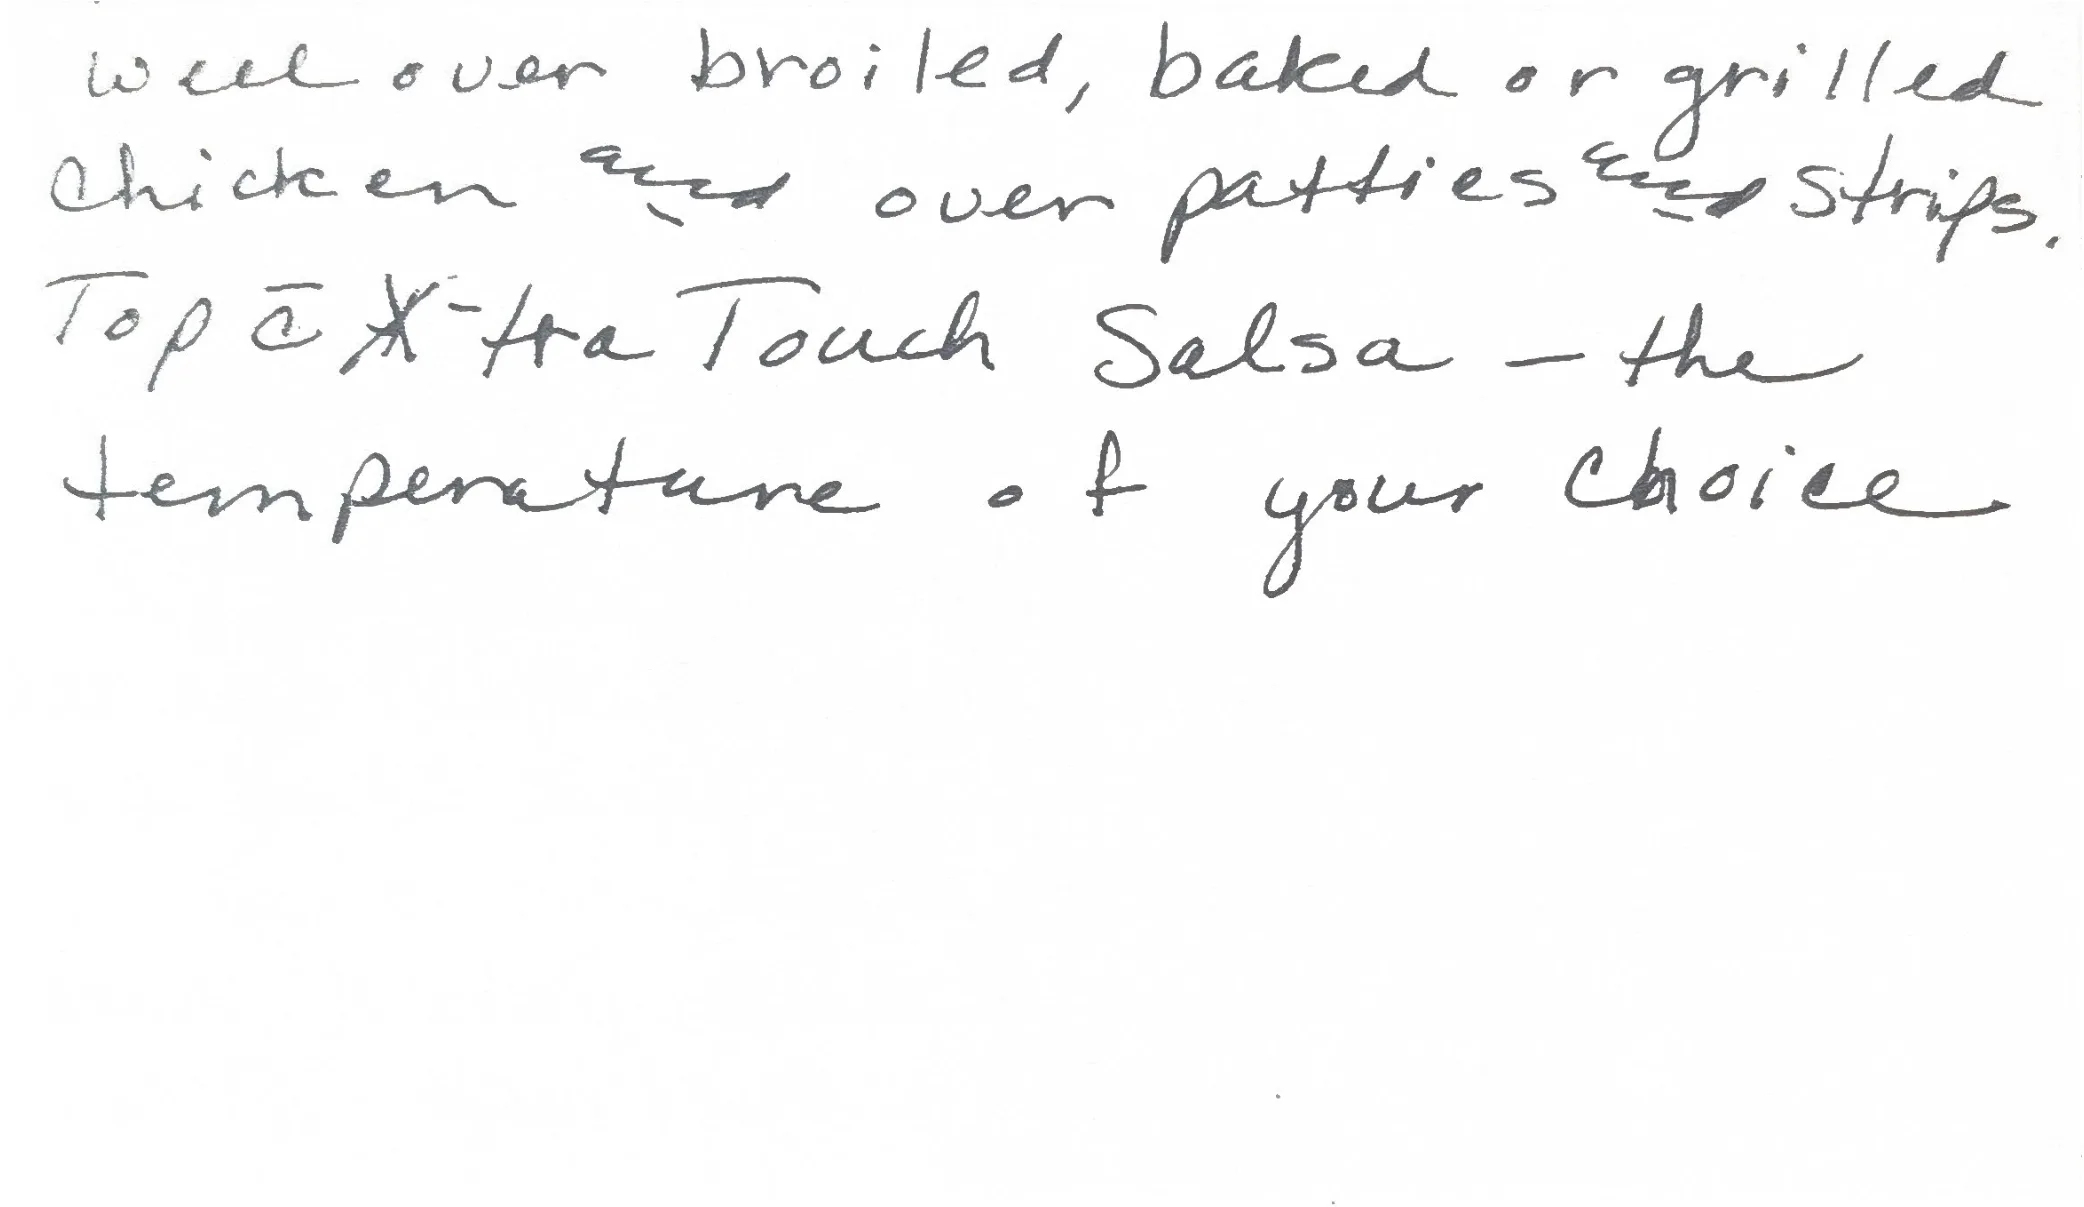 well over broiled, baked or grilled
chicken and over patties and strips.
Top c̄ X-tra Touch Salsa – the
temperature of your choice